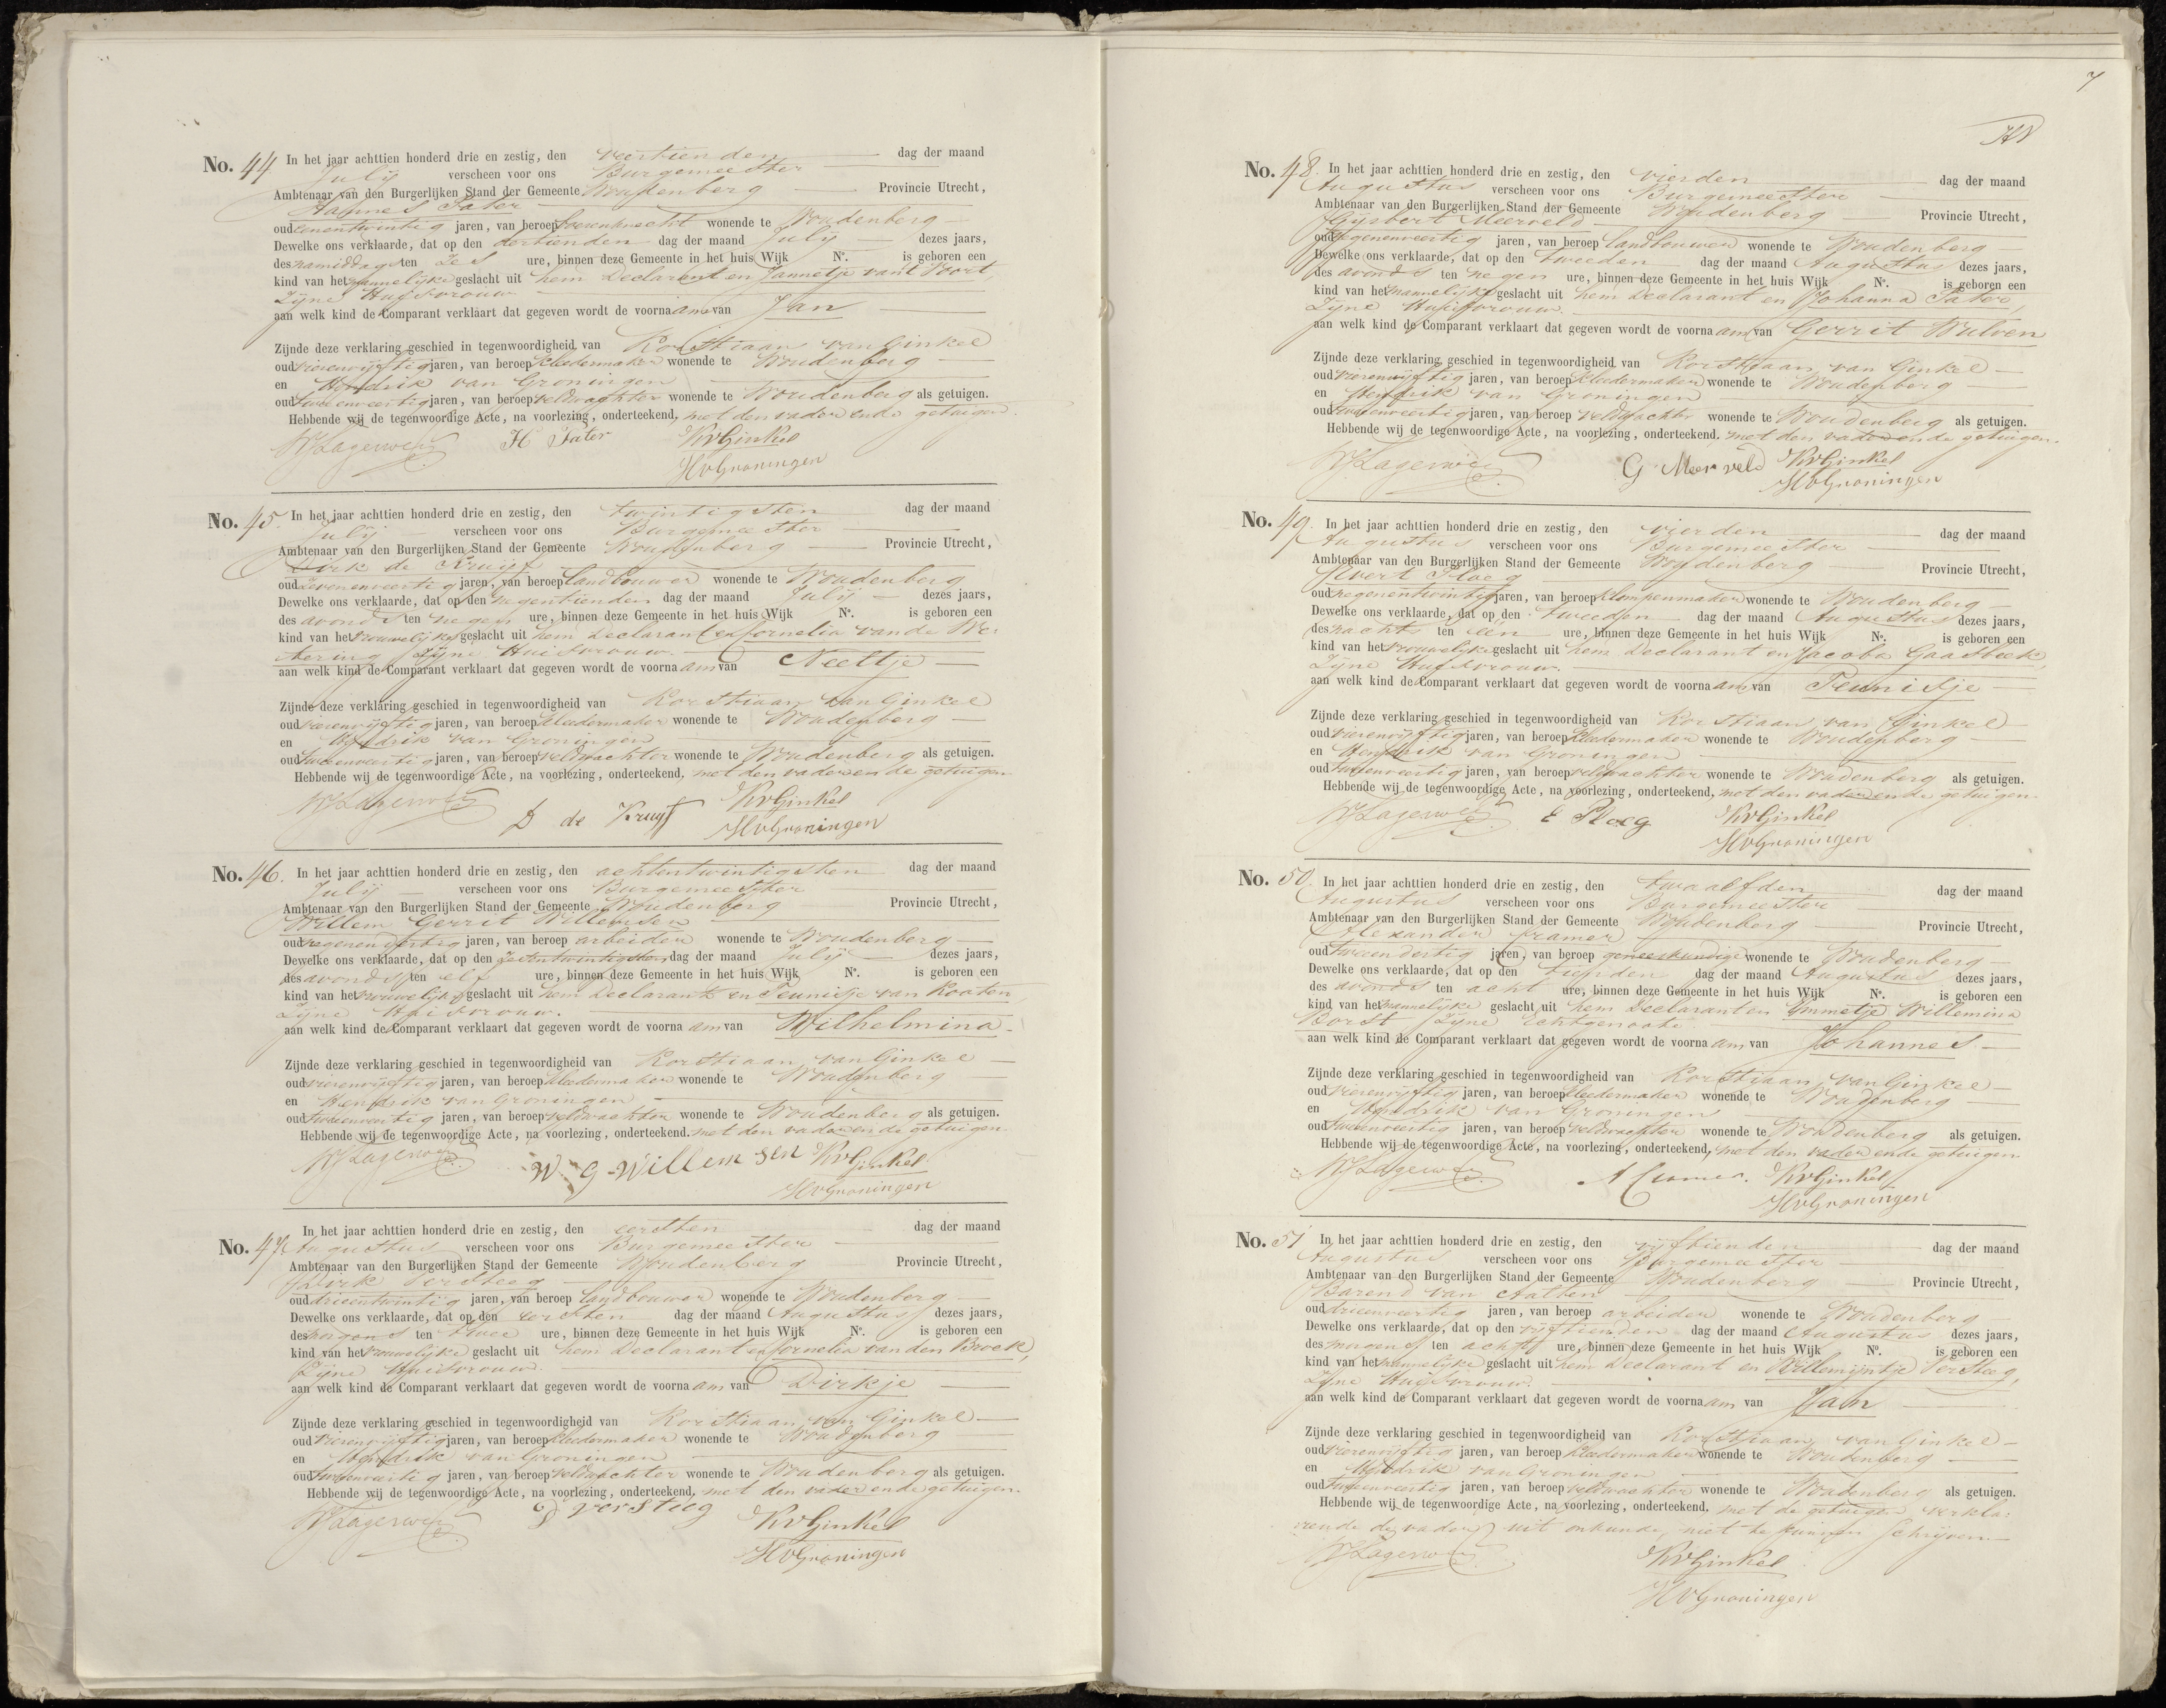 No. 44 In het jaar achttien honderd drie en zestig, den veertienden dag der maand
July verscheen voor ons Burgemeester
Ambtenaar van den Burgerlijken Stand der Gemeente Woudenberg Provincie Utrecht,
Hannes Pater
oud eenentwintig jaren, van beroep boerenknecht wonende te Woudenberg
Dewelke ons verklaarde, dat op den dertienden dag der maand July dezes jaars,
des namiddags ten zes ure, binnen deze Gemeente in het huis Wijk N°. is geboren een
kind van het mannelijke geslacht uit hem Declarant en Jannetje van 't Voort
Zijne Huisvrouw
aan welk kind de Comparant verklaart dat gegeven wordt de voorna am van Jan
Zijnde deze verklaring geschied in tegenwoordigheid van Korstiaan van Ginkel
oud vierenvijftig jaren, van beroep kleedermaker wonende te Woudenberg
en Hendrik van Groningen
oud tweeenveertig jaren, van beroep veldwachter wonende te Woudenberg als getuigen.
Hebbende wij de tegenwoordige Acte, na voorlezing, onderteekend, met den vader en de getuigen.
H Pater KvGinkel
HvGroningen
No. 45. In het jaar achttien honderd drie en zestig, den twintigsten dag der maand
July verscheen voor ons Burgemeester
Ambtenaar van den Burgerlijken Stand der Gemeente Woudenberg Provincie Utrecht,
Dirk de Kruijf
oud zevenenveertig jaren, van beroep landbouwer wonende te Woudenberg
Dewelke ons verklaarde, dat op den negentienden dag der maand July dezes jaars,
des avonds ten negen ure, binnen deze Gemeente in het huis Wijk N°. is geboren een
kind van het vrouwelijke geslacht uit hem Declarant en Cornelia van de We-
tering Zijne Huisvrouw.
aan welk kind de Comparant verklaart dat gegeven wordt de voorna am van Neeltje
Zijnde deze verklaring geschied in tegenwoordigheid van Korstiaan van Ginkel
oud vierenvijftig jaren, van beroep kleedermaker wonende te Woudenberg
en Hendrik van Groningen
oud tweeenveertig jaren, van beroep veldwachter wonende te Woudenberg als getuigen.
Hebbende wij de tegenwoordige Acte, na voorlezing, onderteekend, met den vader en de getuigen.
D de Kruyf KvGinkel
HvGroningen
No. 46. In het jaar achttien honderd drie en zestig, den achtentwintigsten dag der maand
July verscheen voor ons Burgemeester
Ambtenaar van den Burgerlijken Stand der Gemeente Woudenberg Provincie Utrecht,
Willem Gerrit Willemsen
oud negenendertig jaren, van beroep arbeider wonende te Woudenberg
Dewelke ons verklaarde, dat op den zesentwintigsten dag der maand July dezes jaars,
des avonds ten elf ure, binnen deze Gemeente in het huis Wijk N°. is geboren een
kind van het vrouwelijke geslacht uit hem Declarant en Teunisje van Kooten
Zijne Huisvrouw.
aan welk kind de Comparant verklaart dat gegeven wordt de voorna am van Wilhelmina
Zijnde deze verklaring geschied in tegenwoordigheid van Korstiaan van Ginkel
oud vierenvijftig jaren, van beroep kleedermaker wonende te Woudenberg
en Hendrik van Groningen
oud tweeenveertig jaren, van beroep veldwachter wonende te Woudenberg als getuigen.
Hebbende wij de tegenwoordige Acte, na voorlezing, onderteekend, met den vader en de getuigen.
W G Willemsen KvGinkel
HvGroningen
No. 47. In het jaar achttien honderd drie en zestig, den eersten dag der maand
Augustus verscheen voor ons Burgemeester
Ambtenaar van den Burgerlijken Stand der Gemeente Woudenberg Provincie Utrecht,
Dirk Versteeg
oud drieentwintig jaren, van beroep landbouwer wonende te Woudenberg
Dewelke ons verklaarde, dat op den eersten dag der maand Augustus dezes jaars,
des morgens ten twee ure, binnen deze Gemeente in het huis Wijk N°. is geboren een
kind van het vrouwelijke geslacht uit hem Declarant en Cornelia van den Broek,
Zijne Huisvrouw.
aan welk kind de Comparant verklaart dat gegeven wordt de voorna am van Dirkje
Zijnde deze verklaring geschied in tegenwoordigheid van Korstiaan van Ginkel
oud vierenvijftig jaren, van beroep kleedermaker wonende te Woudenberg
en Hendrik van Groningen
oud tweeenveertig jaren, van beroep veldwachter wonende te Woudenberg als getuigen.
Hebbende wij de tegenwoordige Acte, na voorlezing, onderteekend, met den vader en de getuigen.
D versteeg KvGinkel
HvGroningen
7
No. 48. In het jaar achttien honderd drie en zestig, den vierden dag der maand
Augustus verscheen voor ons Burgemeester
Ambtenaar van den Burgerlijken Stand der Gemeente Woudenberg Provincie Utrecht,
Gijsbert Meerveld
oud negenenveertig jaren, van beroep landbouwer wonende te Woudenberg
Dewelke ons verklaarde, dat op den tweeden dag der maand Augustus dezes jaars,
des avonds ten negen ure, binnen deze Gemeente in het huis Wijk N°. is geboren een
kind van het mannelijke geslacht uit hem Declarant en Johanna Pater,
Zijne Huisvrouw.
aan welk kind de Comparant verklaart dat gegeven wordt de voorna am van Gerrit Wulven
Zijnde deze verklaring geschied in tegenwoordigheid van Korstiaan van Ginkel
oud vierenvijftig jaren, van beroep kleedermaker wonende te Woudenberg
en Hendrik van Groningen
oud tweeenveertig jaren, van beroep veldwachter wonende te Woudenberg als getuigen.
Hebbende wij de tegenwoordige Acte, na voorlezing, onderteekend, met den vader en de getuigen.
G Meerveld KvGinkel
HvGroningen
No. 49. In het jaar achttien honderd drie en zestig, den vierden dag der maand
Augustus verscheen voor ons Burgemeester
Ambtenaar van den Burgerlijken Stand der Gemeente Woudenberg Provincie Utrecht,
Evert Ploeg
oud negenentwintig jaren, van beroep klompenmaker wonende te Woudenberg
Dewelke ons verklaarde, dat op den tweeden dag der maand Augustus dezes jaars,
des nachts ten een ure, binnen deze Gemeente in het huis Wijk N°. is geboren een
kind van het vrouwelijke geslacht uit hem Declarant en Jacoba Gaasbeek,
Zijne Huisvrouw.
aan welk kind de Comparant verklaart dat gegeven wordt de voorna am van Teunisje
Zijnde deze verklaring geschied in tegenwoordigheid van Korstiaan van Ginkel
oud vierenvijftig jaren, van beroep kleedermaker wonende te Woudenberg
en Hendrik van Groningen
oud tweeenveertig jaren, van beroep veldwachter wonende te Woudenberg als getuigen.
Hebbende wij de tegenwoordige Acte, na voorlezing, onderteekend, met den vader en de getuigen.
E Ploeg KvGinkel
HvGroningen
No. 50. In het jaar achttien honderd drie en zestig, den twaalfden dag der maand
Augustus verscheen voor ons Burgemeester
Ambtenaar van den Burgerlijken Stand der Gemeente Woudenberg Provincie Utrecht,
Alexander Cramer
oud tweeendertig jaren, van beroep geneeskundige wonende te Woudenberg
Dewelke ons verklaarde, dat op den tienden dag der maand Augustus dezes jaars,
des avonds ten acht ure, binnen deze Gemeente in het huis Wijk N°. is geboren een
kind van het mannelijke geslacht uit hem Declarant en Immetje Willemina
Borst Zijne Echtgenoote
aan welk kind de Comparant verklaart dat gegeven wordt de voorna am van Johannes
Zijnde deze verklaring geschied in tegenwoordigheid van Korstiaan van Ginkel
oud vierenvijftig jaren, van beroep kleedermaker wonende te Woudenberg
en Hendrik van Groningen
oud tweeenveertig jaren, van beroep veldwachter wonende te Woudenberg als getuigen.
Hebbende wij de tegenwoordige Acte, na voorlezing, onderteekend, met den vader en de getuigen.
A Cramer. KvGinkel
HvGroningen
No. 51 In het jaar achttien honderd drie en zestig, den vijftienden dag der maand
Augustus verscheen voor ons Burgemeester
Ambtenaar van den Burgerlijken Stand der Gemeente Woudenberg Provincie Utrecht,
Barend van Aalten
oud drieenveertig jaren, van beroep arbeider wonende te Woudenberg
Dewelke ons verklaarde, dat op den vijftienden dag der maand Augustus dezes jaars,
des morgens ten acht ure, binnen deze Gemeente in het huis Wijk N°. is geboren een
kind van het mannelijke geslacht uit hem Declarant en Willemijntje Versteeg,
Zijne Huisvrouw.
aan welk kind de Comparant verklaart dat gegeven wordt de voorna am van Jan
Zijnde deze verklaring geschied in tegenwoordigheid van Korstiaan van Ginkel
oud vierenvijftig jaren, van beroep kleedermaker wonende te Woudenberg
en Hendrik van Groningen
oud tweeenveertig jaren, van beroep veldwachter wonende te Woudenberg als getuigen.
Hebbende wij de tegenwoordige Acte, na voorlezing, onderteekend, met de getuigen verkla-
rende de vader uit onkunde niet te kunnen schrijven.
KvGinkel
HvGroningen